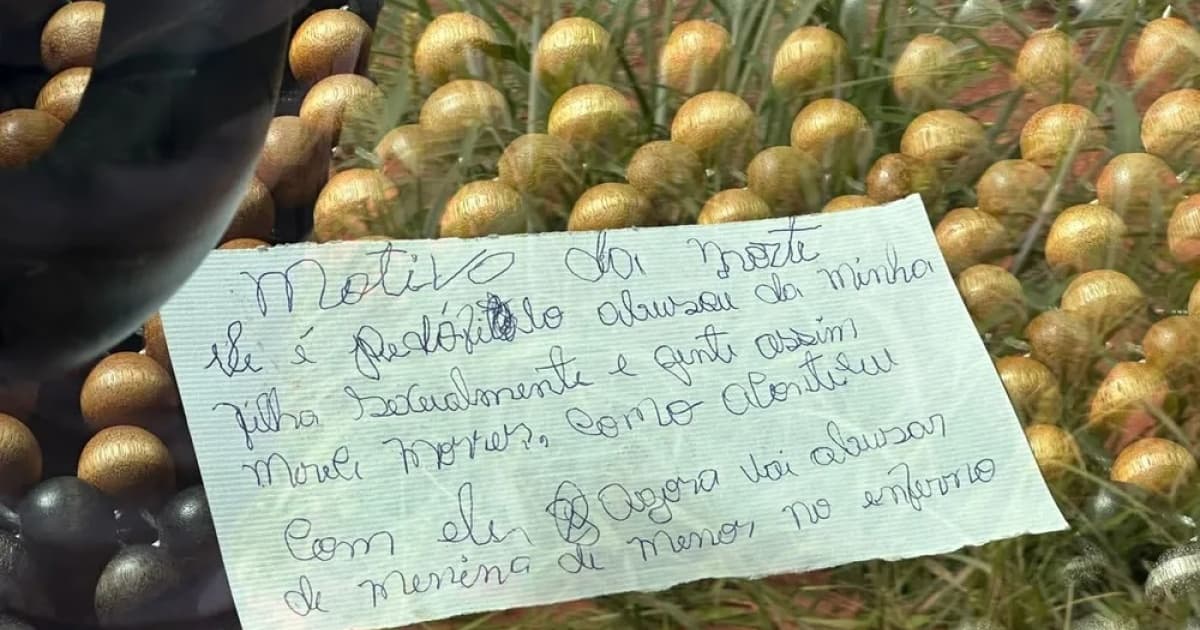 Motivo da morte
ele é pedófilo abusou da minha
filha sexualmente e gente assim
mereçe morrer, como aconteceu
com ele, Agora vai abusar
de menina de menor, no enferno